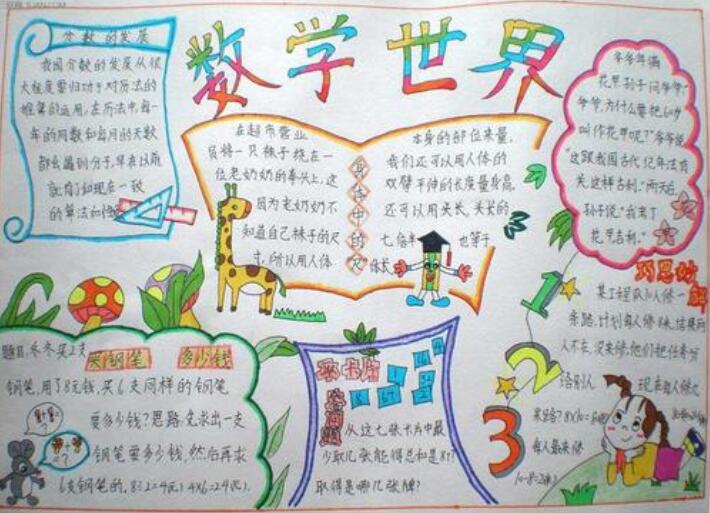 数学世界
分数的发展
我国分数的发展从很
大程度要归功于对历法的
推算的运用,在历法中,每一
年的周数和每月的天数
都会遇到分子,早在以前
就有了和现在一致
的算法如
在超市营业
员将一只袜子绕在一
位老奶奶的拳头上,这
因为老奶奶不
知道自己袜子的尺
寸,所以用人体
身体中的尺
本身的部位来量,
我们还可以用人体的
双臂平伸的长度量身高,
还可以用头长,头长的
七倍半 也等于
体长
爷爷年满
花甲,孙子问爷爷:
爷爷,为什么要把60岁
叫作花甲呢?"爷爷说
"这跟我国古代纪年法有
关,这样吉利."两天后,
孙子说:"我克了
花甲吉利."
买钢笔 多少钱
题目:冬冬买2支
钢笔,用了8元钱,买6支同样的钢笔
要多少钱?思路:先求出一支
钢笔要多少钱,然后再求
6支钢笔的.8÷2=4(元) 4×6=24(元).
卡片
从这七张卡片中最
少取几张能得总和是8?
取得是哪几张牌?
1
2
3
巧思妙解
某工程队10人修一
条路,计划每人修8米,结果两
人不长,没来修,他们把任务分
给别人 现在每人修几
米路?
每人最来修
10-8=2(米)